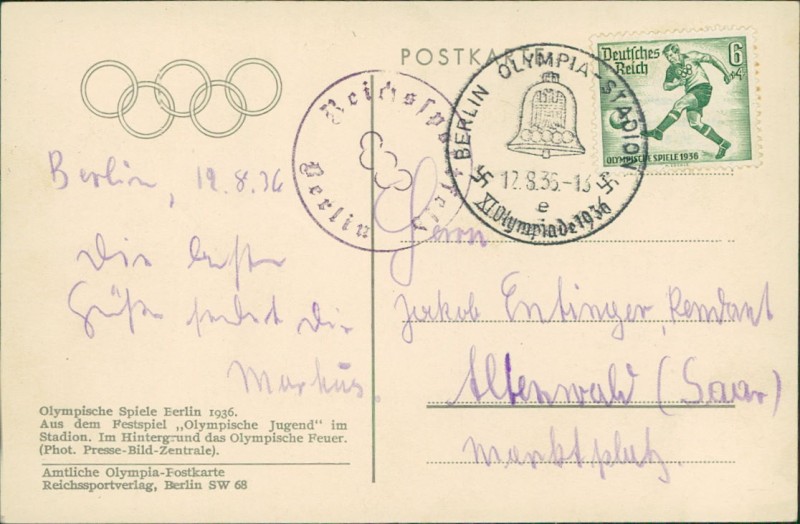 POSTKARTE
Deutsches
Reich
6
+4
OLYMPISCHE SPIELE 1936
BERLIN OLYMPIA-STADION
12.8.36.-13
e
XI. Olympiade 1936
Reichssportfeld
Berlin
Berlin, 12.8.36
Die besten
Grüße sendet Dir
Markus.
Herrn
Jakob Entinger, Rendant
Altenwald (Saar)
Marktplatz.
Olympische Spiele Berlin 1936.
Aus dem Festspiel „Olympische Jugend" im
Stadion. Im Hintergrund das Olympische Feuer.
(Phot. Presse-Bild-Zentrale).
Amtliche Olympia-Postkarte
Reichssportverlag, Berlin SW 68